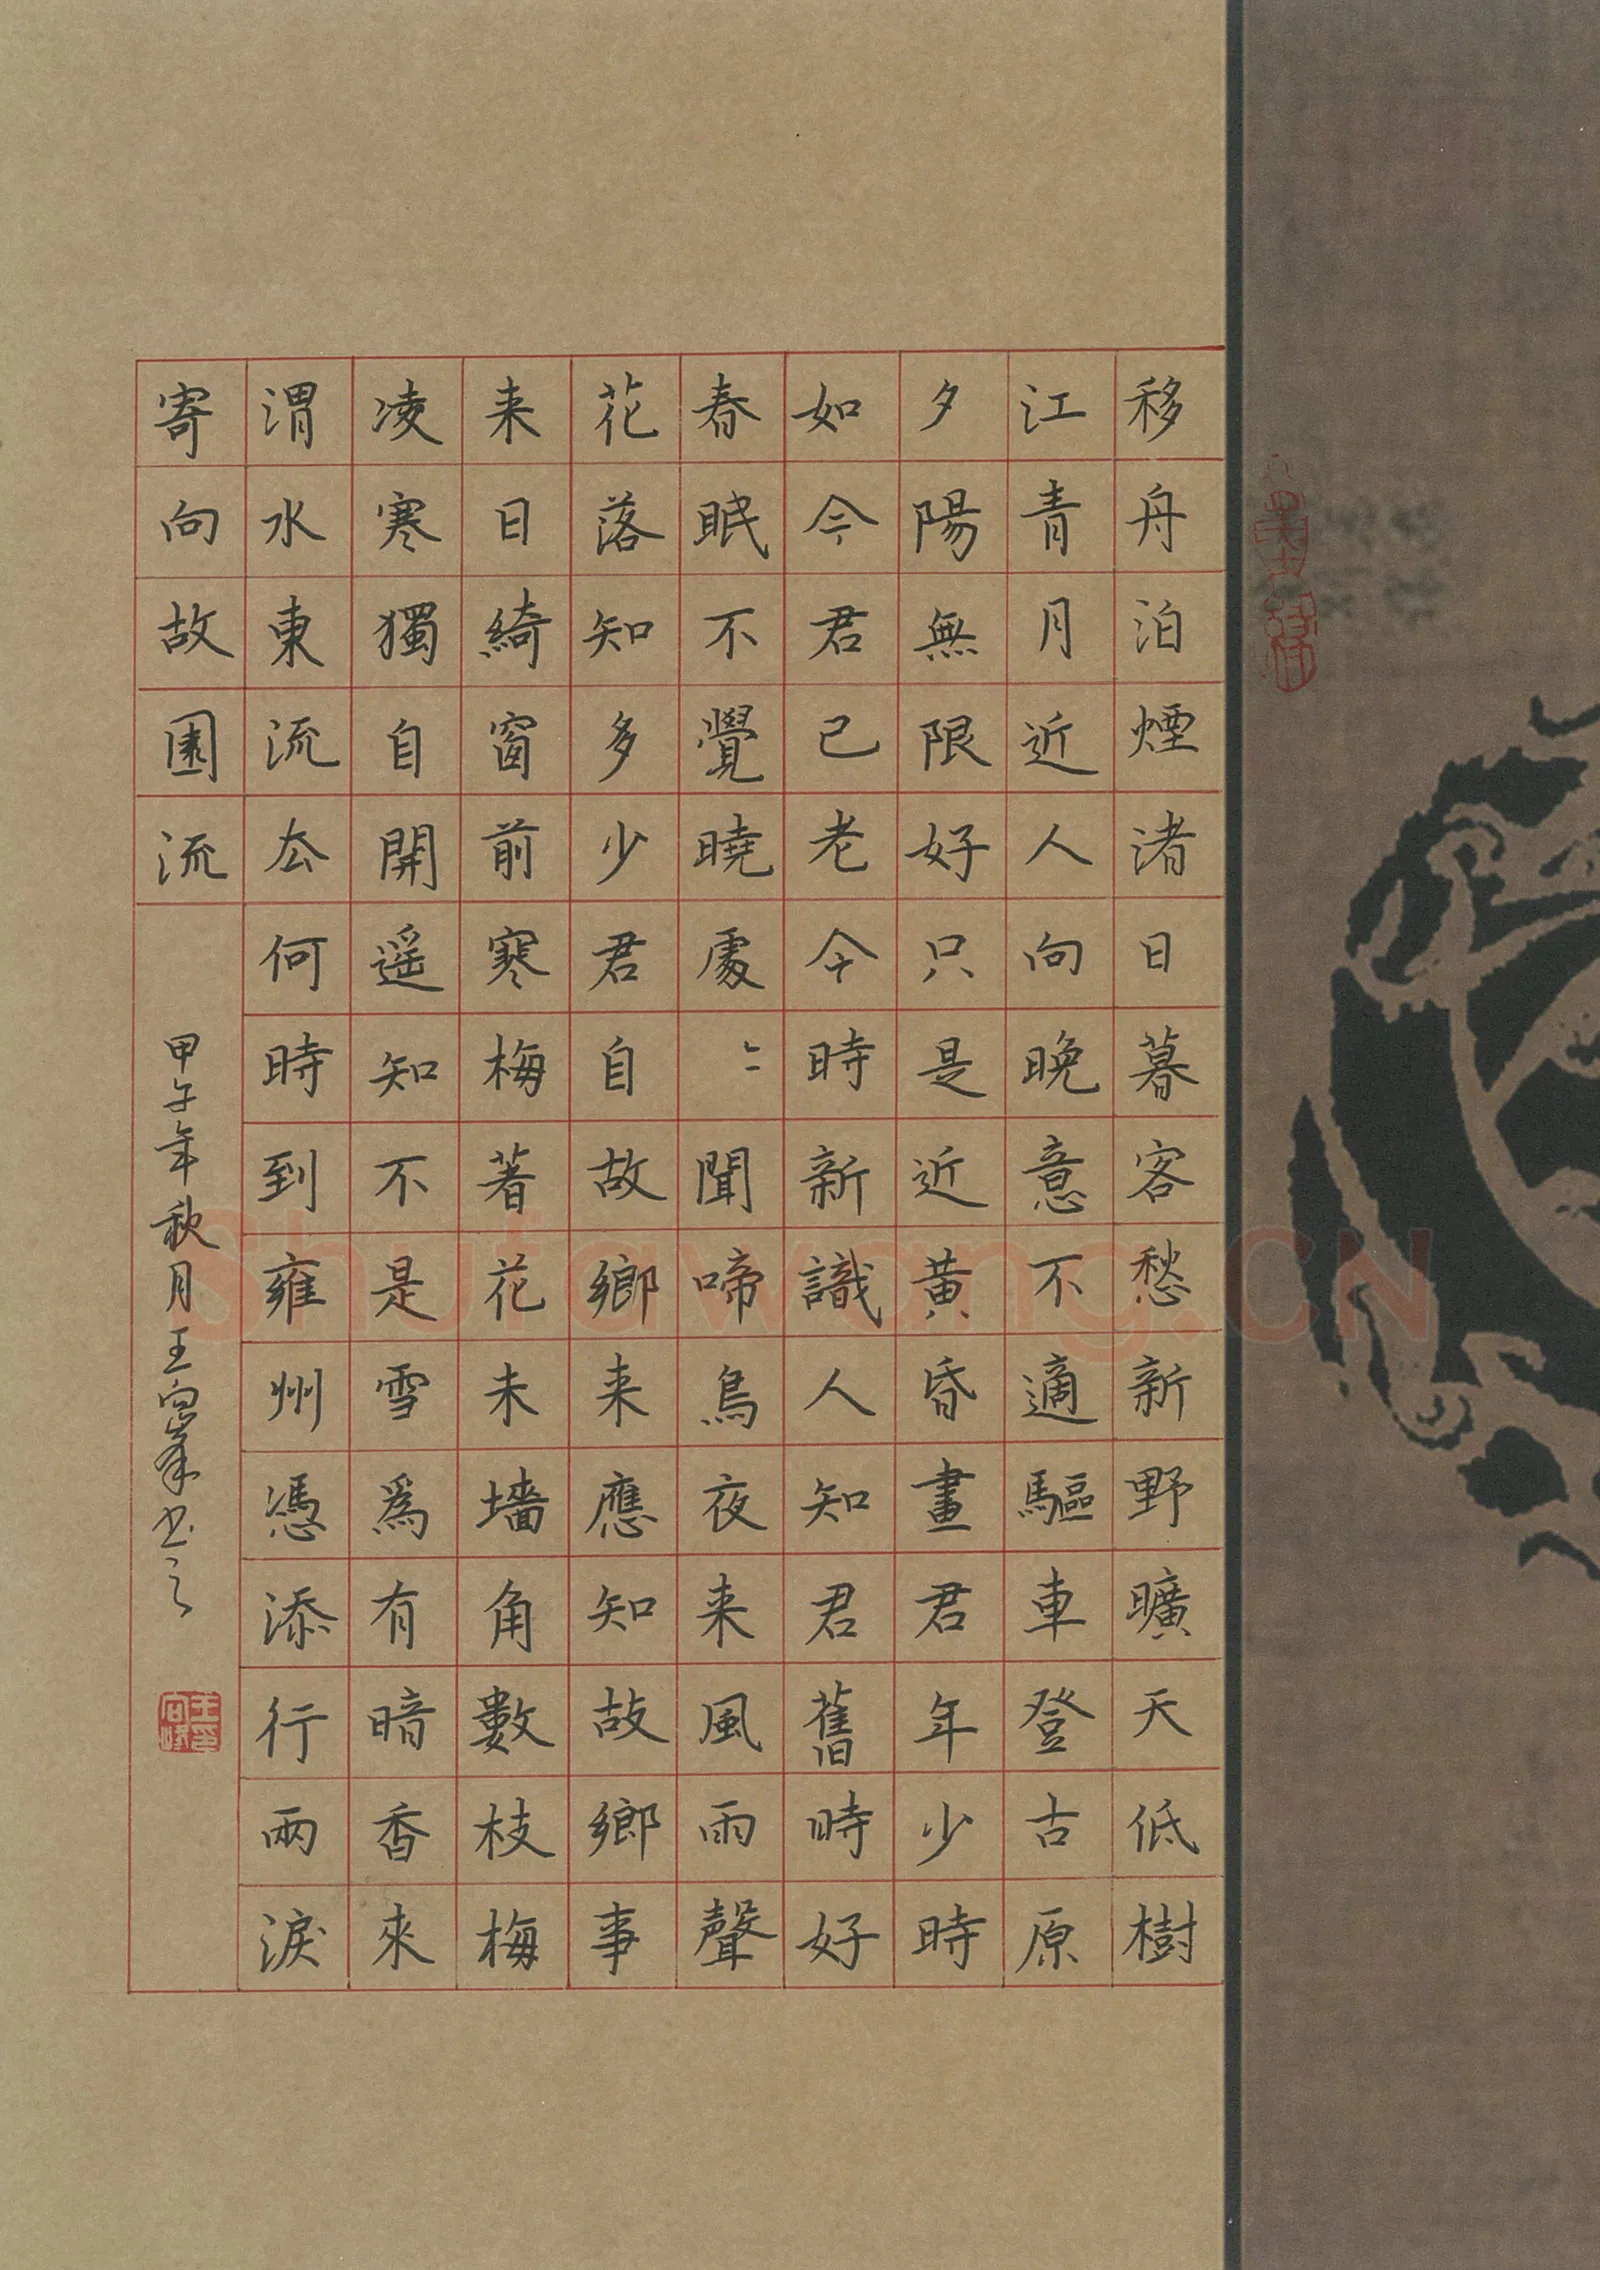 移舟泊煙渚日暮客愁新野曠天低樹
江青月近人向晚意不適驅車登古原
夕陽無限好只是近黃昏畫君年少時
如今君已老今時新識人知君舊時好
春眠不覺曉處〻聞啼鳥夜来風雨聲
花落知多少君自故鄉来應知故鄉事
来日綺窗前寒梅著花未墻角數枝梅
凌寒獨自開遥知不是雪爲有暗香來
渭水東流去何時到雍州憑添行兩淚
寄向故園流
甲午年秋月王向峯书之
王向峰印
Shufawang.CN